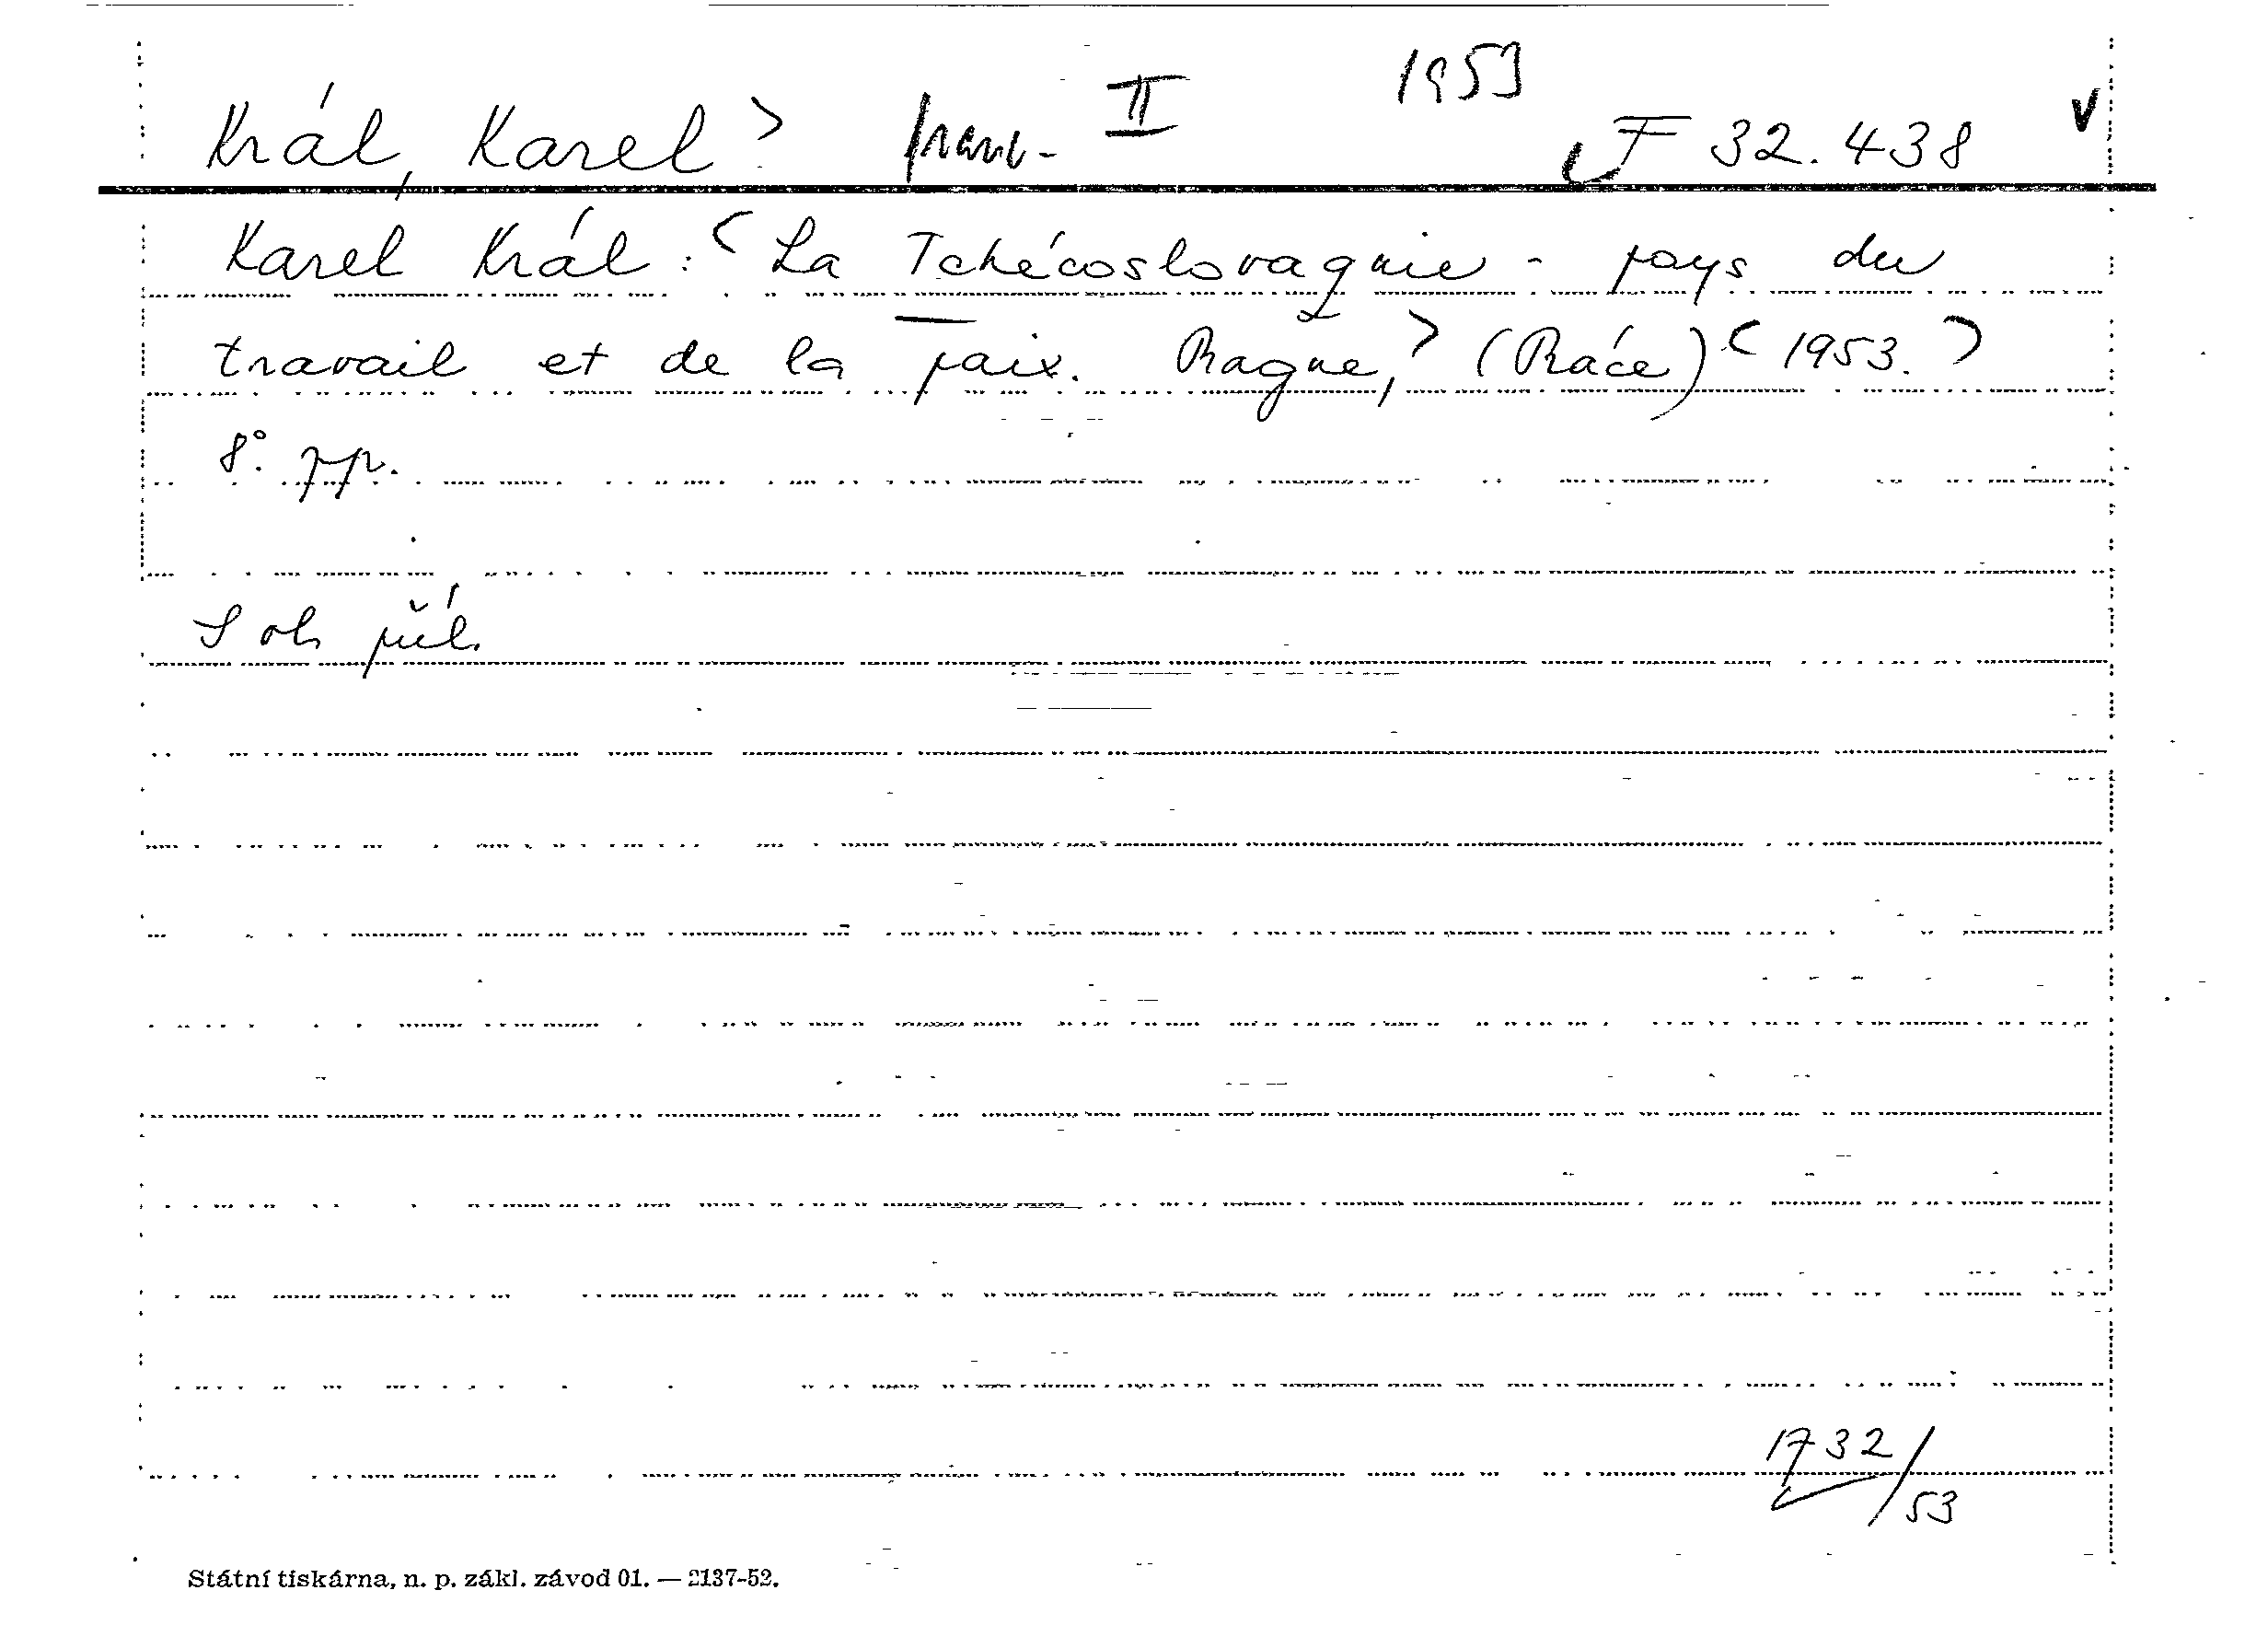 1953
Král, Karel > franc. II F 32.438 v
Karel Král: < La Tchécoslovaquie - pays du
travail et de la paix. Prague, > (Práce) < 1953. >
8°. pp.
S ob. příl.
1732/53
Státní tiskárna, n. p. zákl. závod 01. — 2137-52.